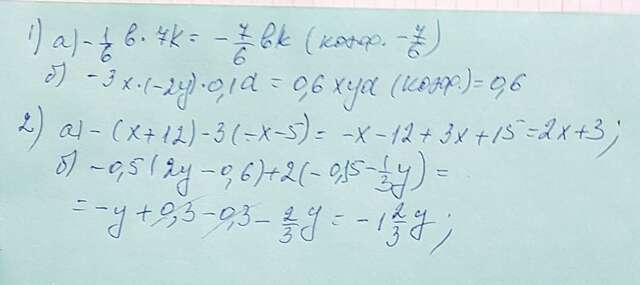 1) а) -1/6 в · 7k = -7/6 вk (коэф. -7/6)
б) -3x·(-2y)·0,1d = 0,6xyd (коэф.) = 0,6
2) а) -(x+12)-3(-x-5) = -x-12+3x+15=2x+3;
б) -0,5(2y-0,6)+2(-0,15-1/3y) =
= -y+0,3-0,3-2/3y = -1 2/3 y;